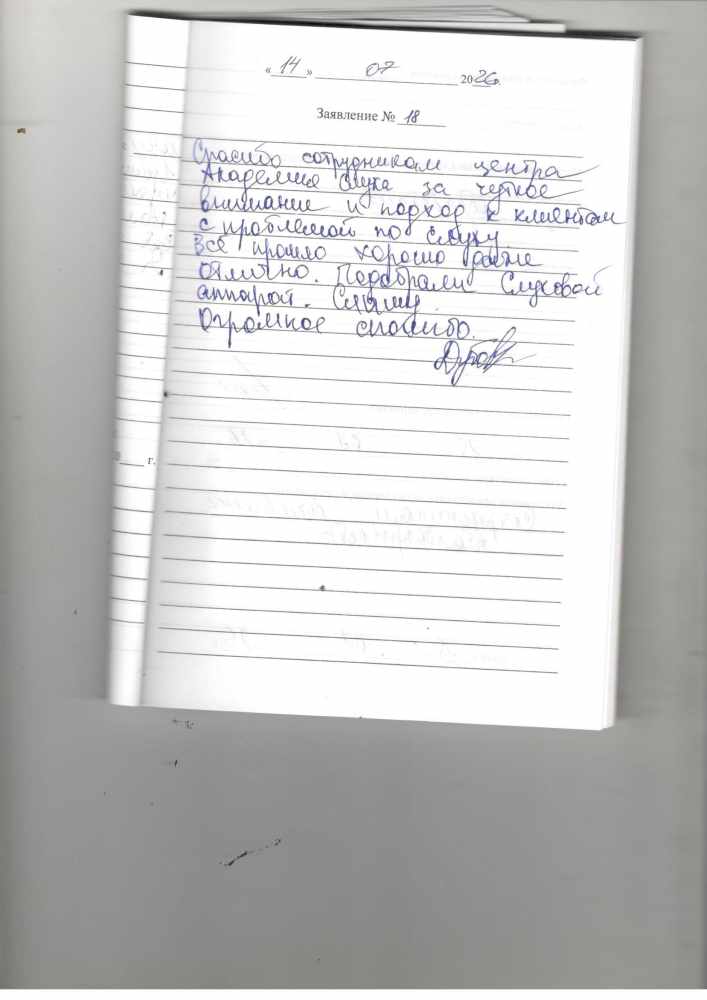 « 14 » 07 2026г.
Заявление № 18
Спасибо сотрудникам центра
Академия слуха за чуткое
внимание и подход к клиентам
с проблемой по слуху.
Всё прошло хорошо даже
отлично. Подобрали слуховой
аппарат. Слышу.
Огромное спасибо.
г.